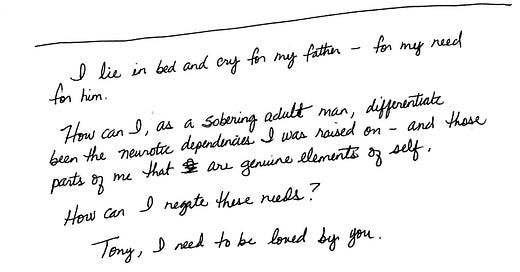 I lie in bed and cry for my father – for my need
for him.
How can I, as a sobering adult man, differentiate
been the neurotic dependencies I was raised on – and those
parts of me that are genuine elements of self.
How can I negate these needs?
Tony, I need to be loved by you.